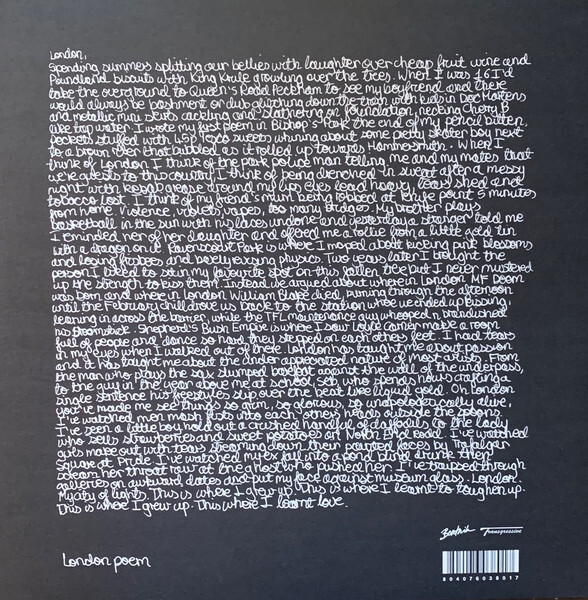 London,
Spending summers splitting our bellies with laughter over cheap fruit wine and
Poundland biscuits with King Krule growling over the trees. When I was 16 I'd
take the overground to Queen's Road Peckham to see my boyfriend and there
would always be bashment or dub glitching down the train with kids in Doc Martens
and metallic mini skirts cackling and slathering on foundation, necking Cherry B
like tap water. I wrote my first poem in Bishop's Park the end of my pencil bitten,
pockets stuffed with 45p Tesco sweets whining about some pretty skater boy next
to a brown river that bubbled as it rolled up towards Hammersmith. When I
think of London I think of the park police man telling me and my mates that
we're guests to this country, I think of being drenched in sweat after a messy
night with kebab grease around my lips eyes lead heavy, tears shed and
tobacco lost. I think of my friend's mum being robbed at knife point 5 minutes
from home. Violence, violets, vapes, too many bridges. My brother plays
basketball in the sun with his laces undone and yesterday a stranger told me
I reminded her of her daughter and offered me a rollie from a little gold tin
with a dragon on it. Ravenscourt Park is where I moped about kicking pink blossoms
and loving frisbees and barely revising physics. Two years later I brought the
person I liked to sit in my favourite spot on this fallen tree but I never mustered
up the strength to kiss them. Instead we argued about where in London MF Doom
was born and where in London William Blake died, punning through the afternoon
until the February chill drove us back to the station where we ended up kissing,
leaning in across the barrier, while the TFL maintenance guy whooped in brandished
his broomstick. Shepherd's Bush Empire is where I saw Loyle Carner make a room
full of people and dance so hard they stepped on each others feet. I had tears
in my eyes when I walked out of there. London has taught me about passion
and it has taught me about the under appreciated nature of most artists. From
the man who plays the sax slumped barefoot against the wall of the underpass,
to the guy in the year above me at school, Seb, who spends hours crafting a
single sentence his freestyles slip over the beat like liquid gold. Oh London
you've made me see things so grim, so glorious, so unapologetically alive,
I've watched men mash pints into each others heads outside the spoons
I've seen a little boy hold out a crushed handful of daffodils to the lady
who sells strawberries and sweet potatoes on North End Road. I've watched
girls make out with tears streaming down their painted faces by Trafalgar
Square at Pride. I've watched my ex fall into a pond blind drunk then
scream her throat raw at the ghost who pushed her. I've traipsed through
galleries on awkward dates and put my face against museum glass. London.
My city of lights. This is where I grew up. This is where I learnt to toughen up.
This is where I grew up. This where I learnt love.
London poem
Beatnik Transgressive
804076038017